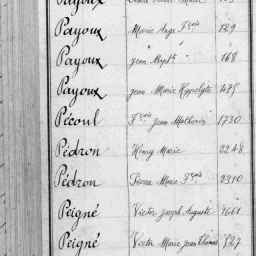 Payoux
Payoux Marie Ange Fçois 129
Payoux Jean Bapte 168
Payoux Jean Marie Hippolyte 475
Pécoul Fçois Jean Mathurin 1730
Pédron Henry Marie 2248
Pédron Pierre Marie Fçois 2310
Peigné Victor Joseph Auguste
Peigné Victor Marie Jean Thomas 827